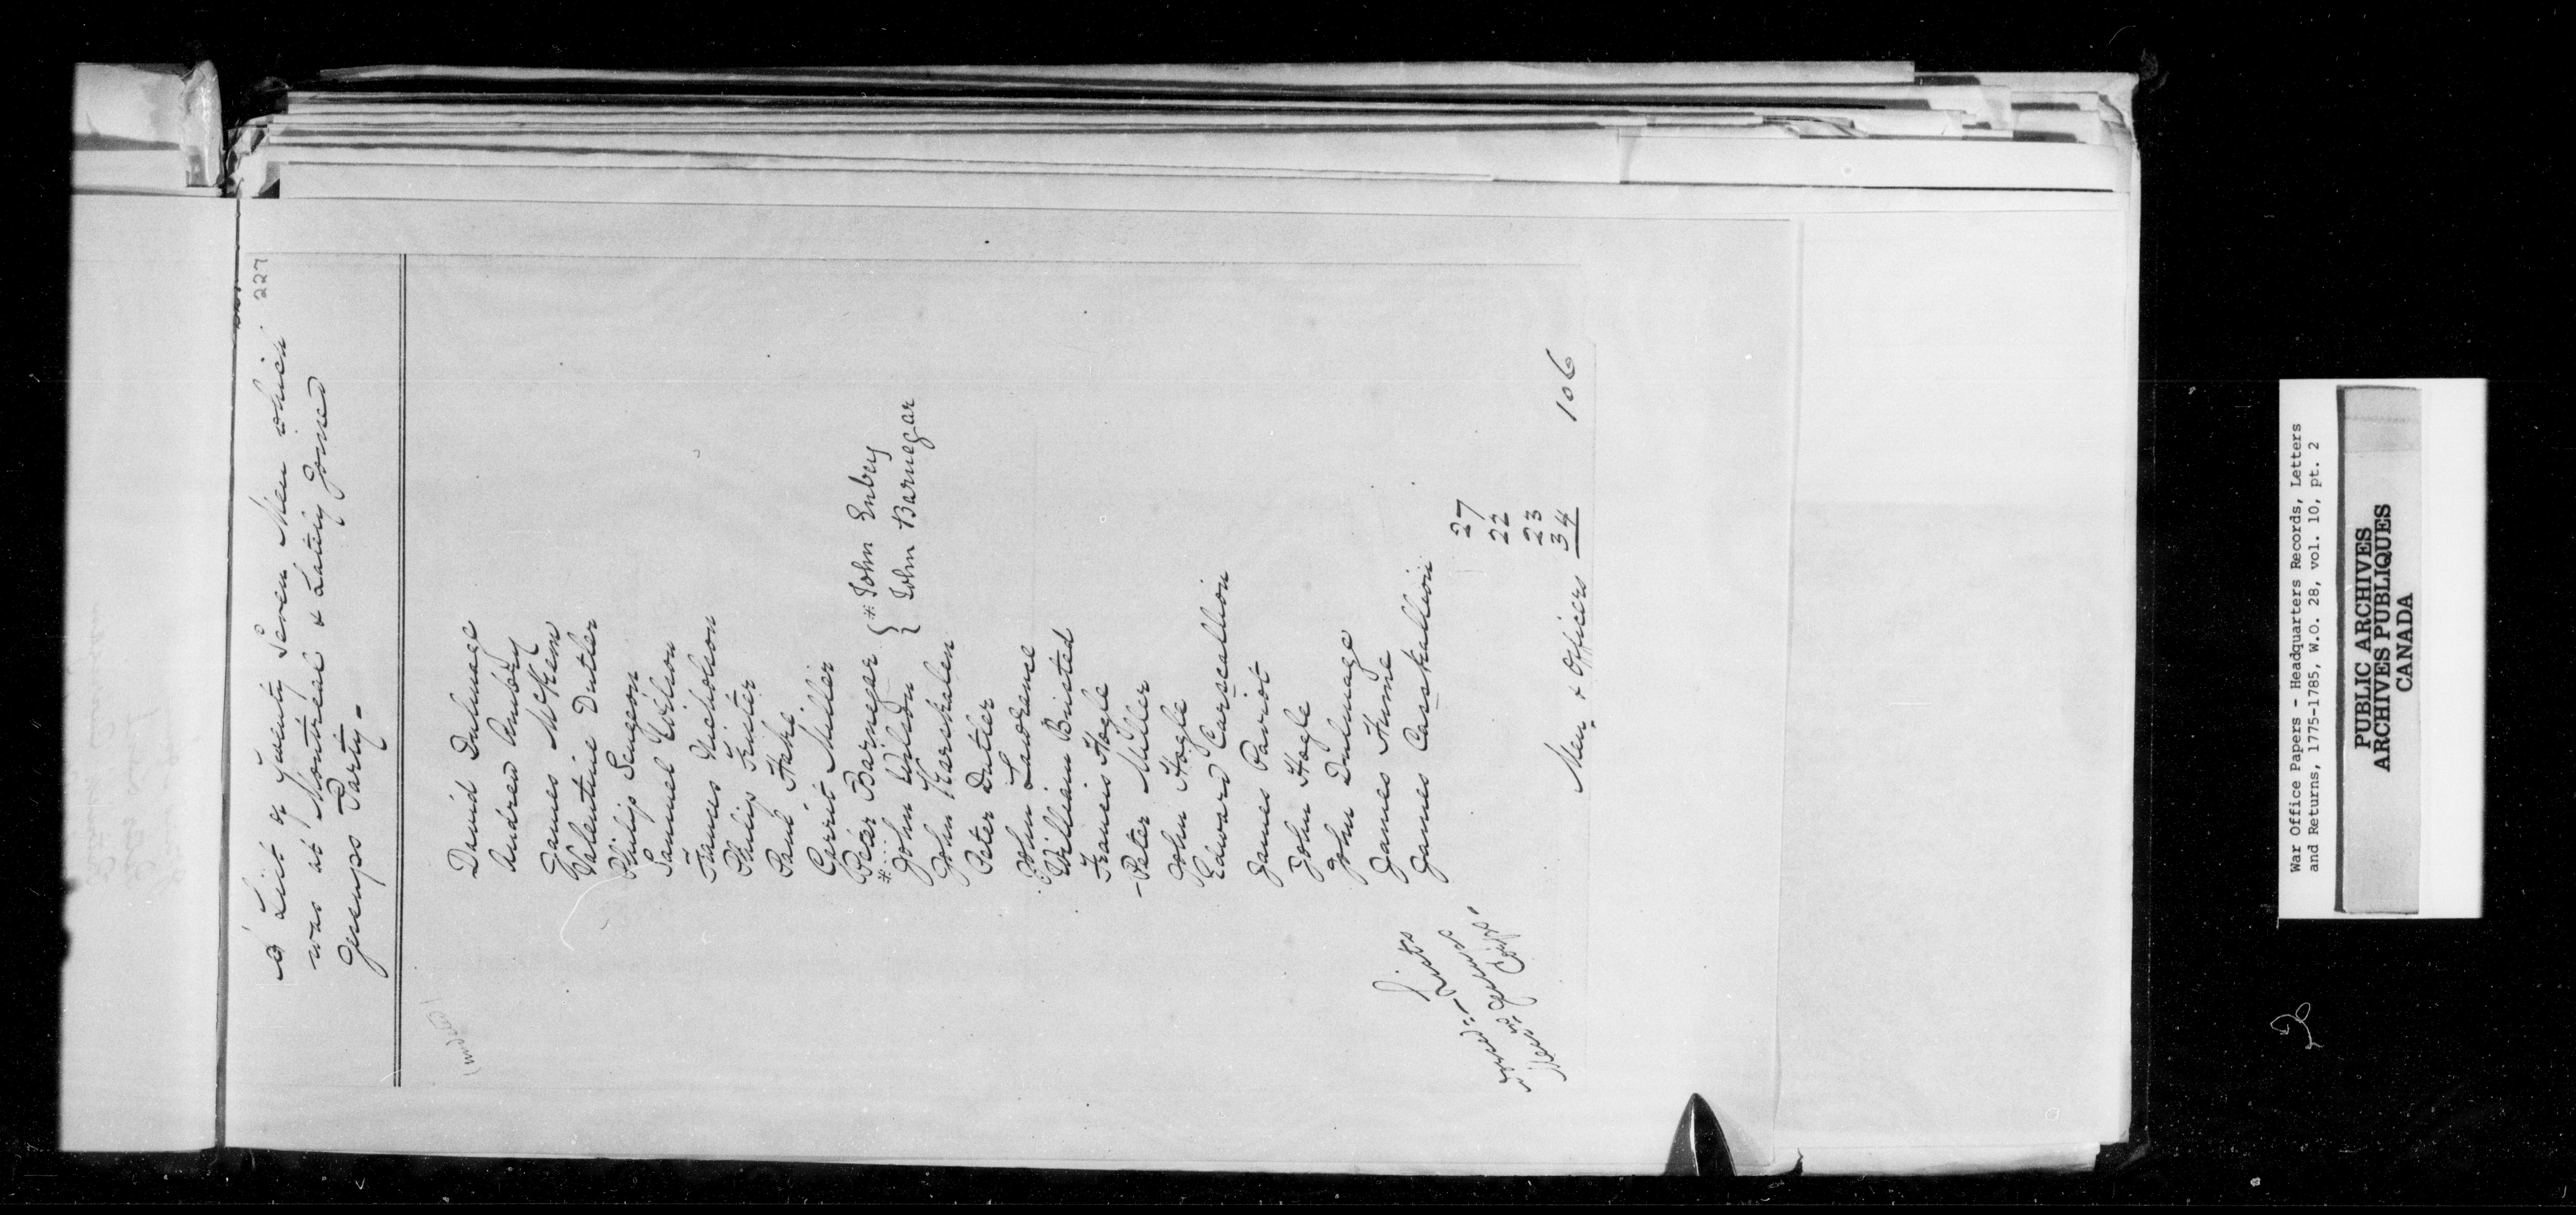 227
A List of Twenty Seven Men which
was at Montreal & Lating Joined
Jessups Party -
David Dulmage
Andrew Ambry
James McKem
Valentine Dutler
Philip Sengeon
Samuel Wilson
Frances Nicholson
Philip Fruter
Paul Heke
Garrit Miller
Peter Barnegar { * John Enbry
* John Wilson { John Barnegar
John Karskalen
Peter Dutler
John Lawrence
William Bristed
Francis Hogle
- Peter Miller
John Hogle
Edward Carscallion
James Pariot
John Hogle
John Dulmage
James Hume
James Casskallion
27
22
23
34
Men & Officers 106
War Office Papers - Headquarters Records, Letters
and Returns, 1775-1785, W.O. 28, vol. 10, pt. 2
PUBLIC ARCHIVES
ARCHIVES PUBLIQUES
CANADA